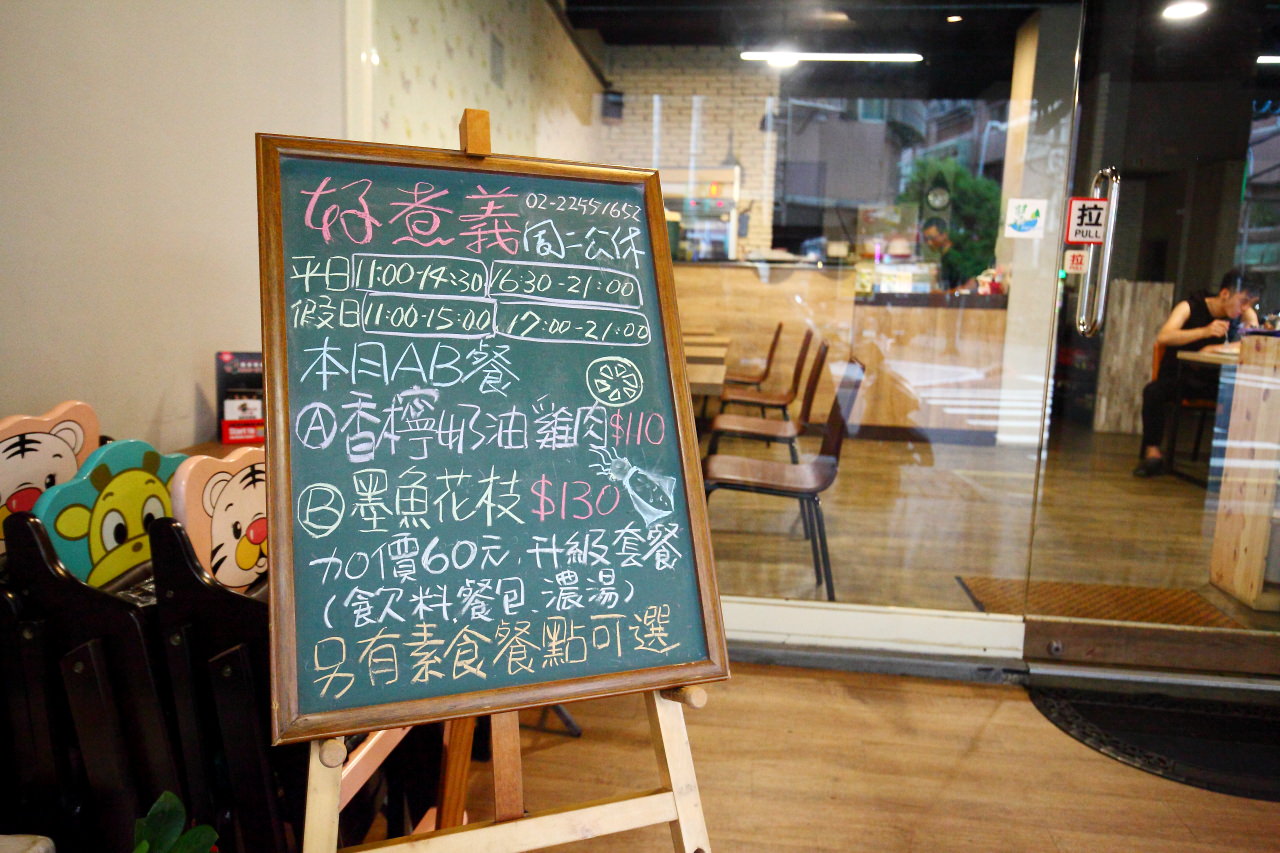 好煮義 02-22551652
周二公休
平日 11:00-14:30 16:30-21:00
假日 11:00-15:00 17:00-21:00
本月AB餐
Ⓐ香檸奶油雞肉$110
Ⓑ墨魚花枝$130
加價60元.升級套餐
(飲料.餐包.濃湯)
另有素食餐點可選
拉
PULL
拉